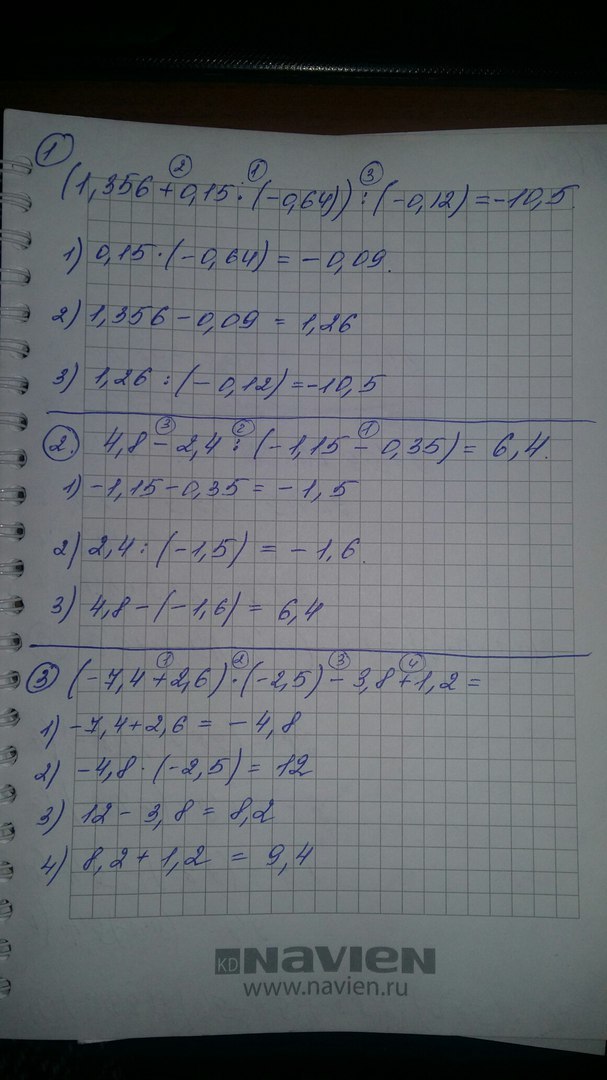 1
2 1 3
(1,356+0,15:(-0,64)):(-0,12)=-10,5.
1) 0,15·(-0,64)=-0,09.
2) 1,356-0,09=1,26
3) 1,26:(-0,12)=-10,5
3 2 1
2. 4,8-2,4:(-1,15-0,35)=6,4.
1) -1,15-0,35=-1,5
2) 2,4:(-1,5)=-1,6.
3) 4,8-(-1,6)=6,4
1 2 3 4
3 (-7,4+2,6)·(-2,5)-3,8+1,2=
1) -7,4+2,6=-4,8
2) -4,8·(-2,5)=12
3) 12-3,8=8,2
4) 8,2+1,2=9,4
KD NAVIEN
www.navien.ru